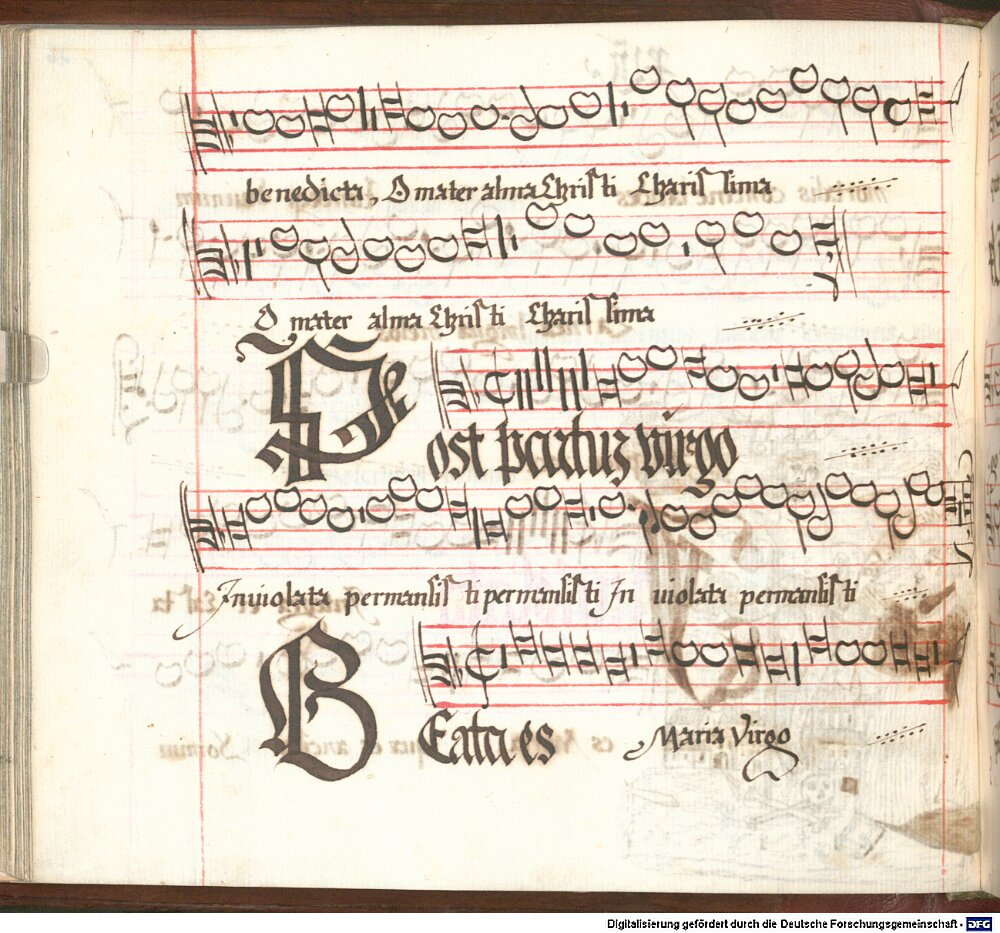 benedicta, O mater alma Christi Charissima
O mater alma Christi Charissima
Post partuz virgo
Inuiolata permansisti permansisti In uiolata permansisti
BEata es Maria Virgo
Digitalisierung gefördert durch die Deutsche Forschungsgemeinschaft - DFG